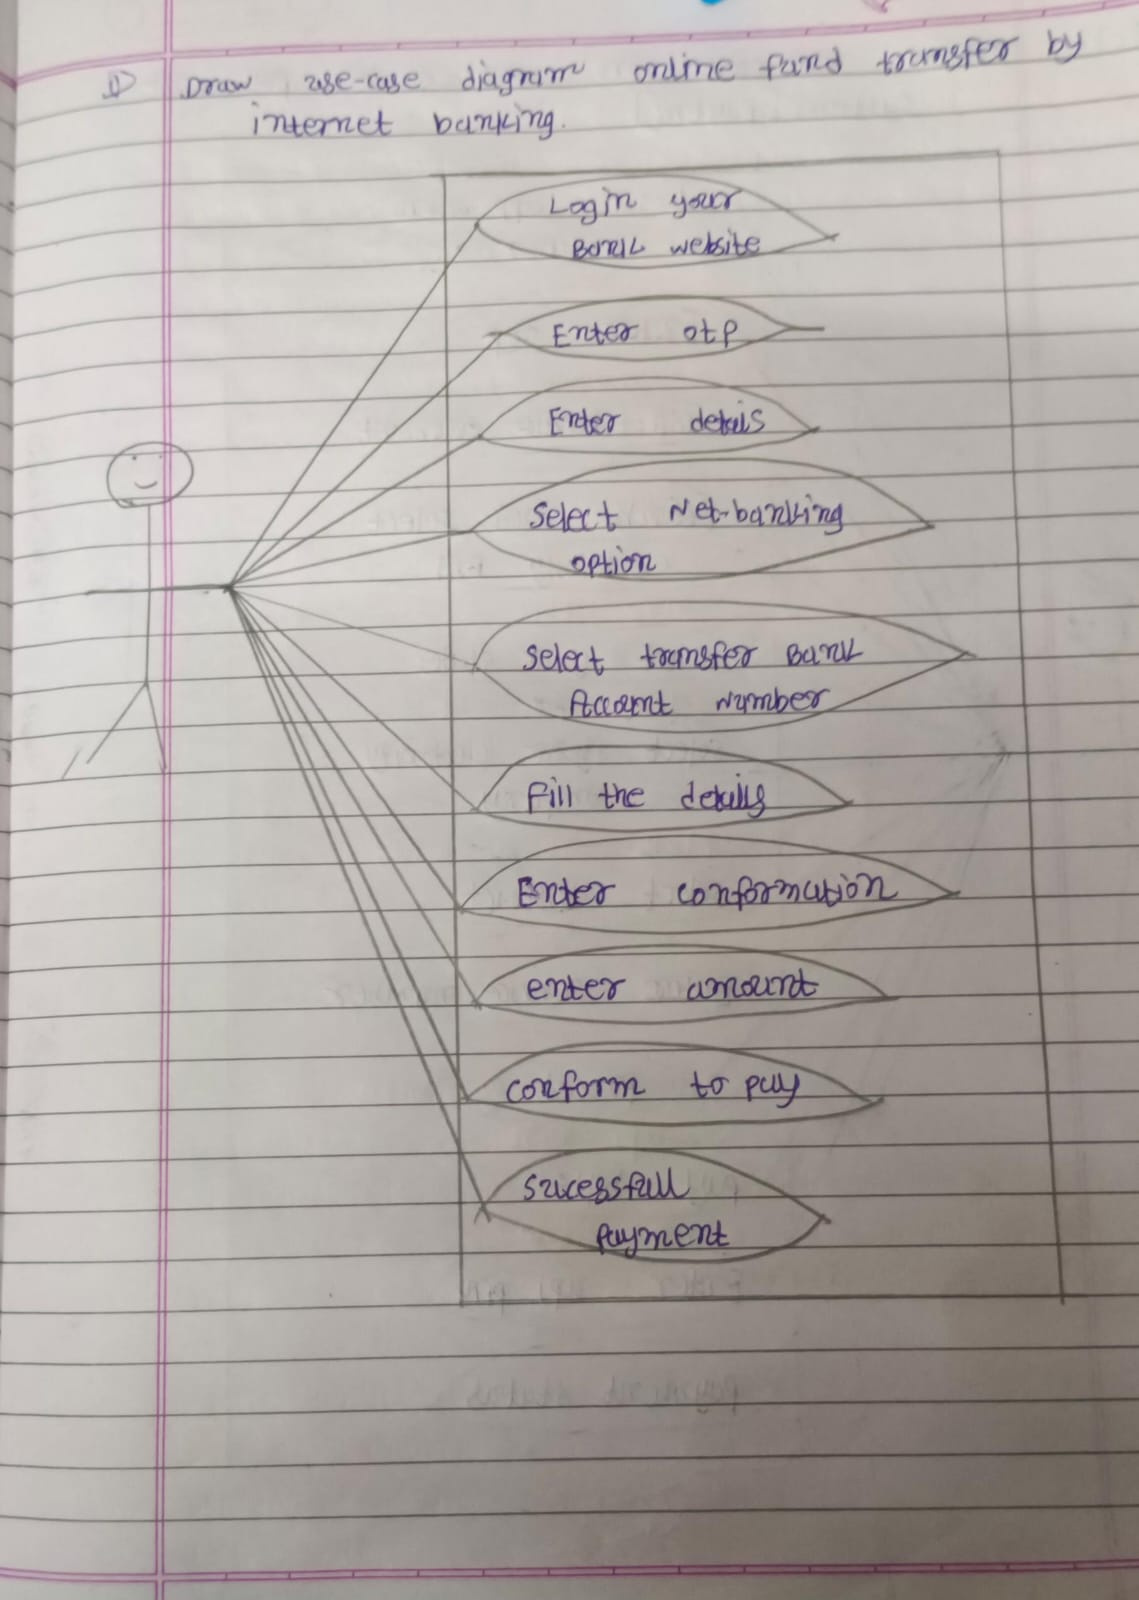 1) Draw use-case diagram online fund transfer by
internet banking.
Login your
Bank website
Enter otp
Enter detais
Select Net-banking
option
Select transfer Bank
Account Number
Fill the details
Enter conformation
enter amount
conform to pay
Sucessfull
Payment